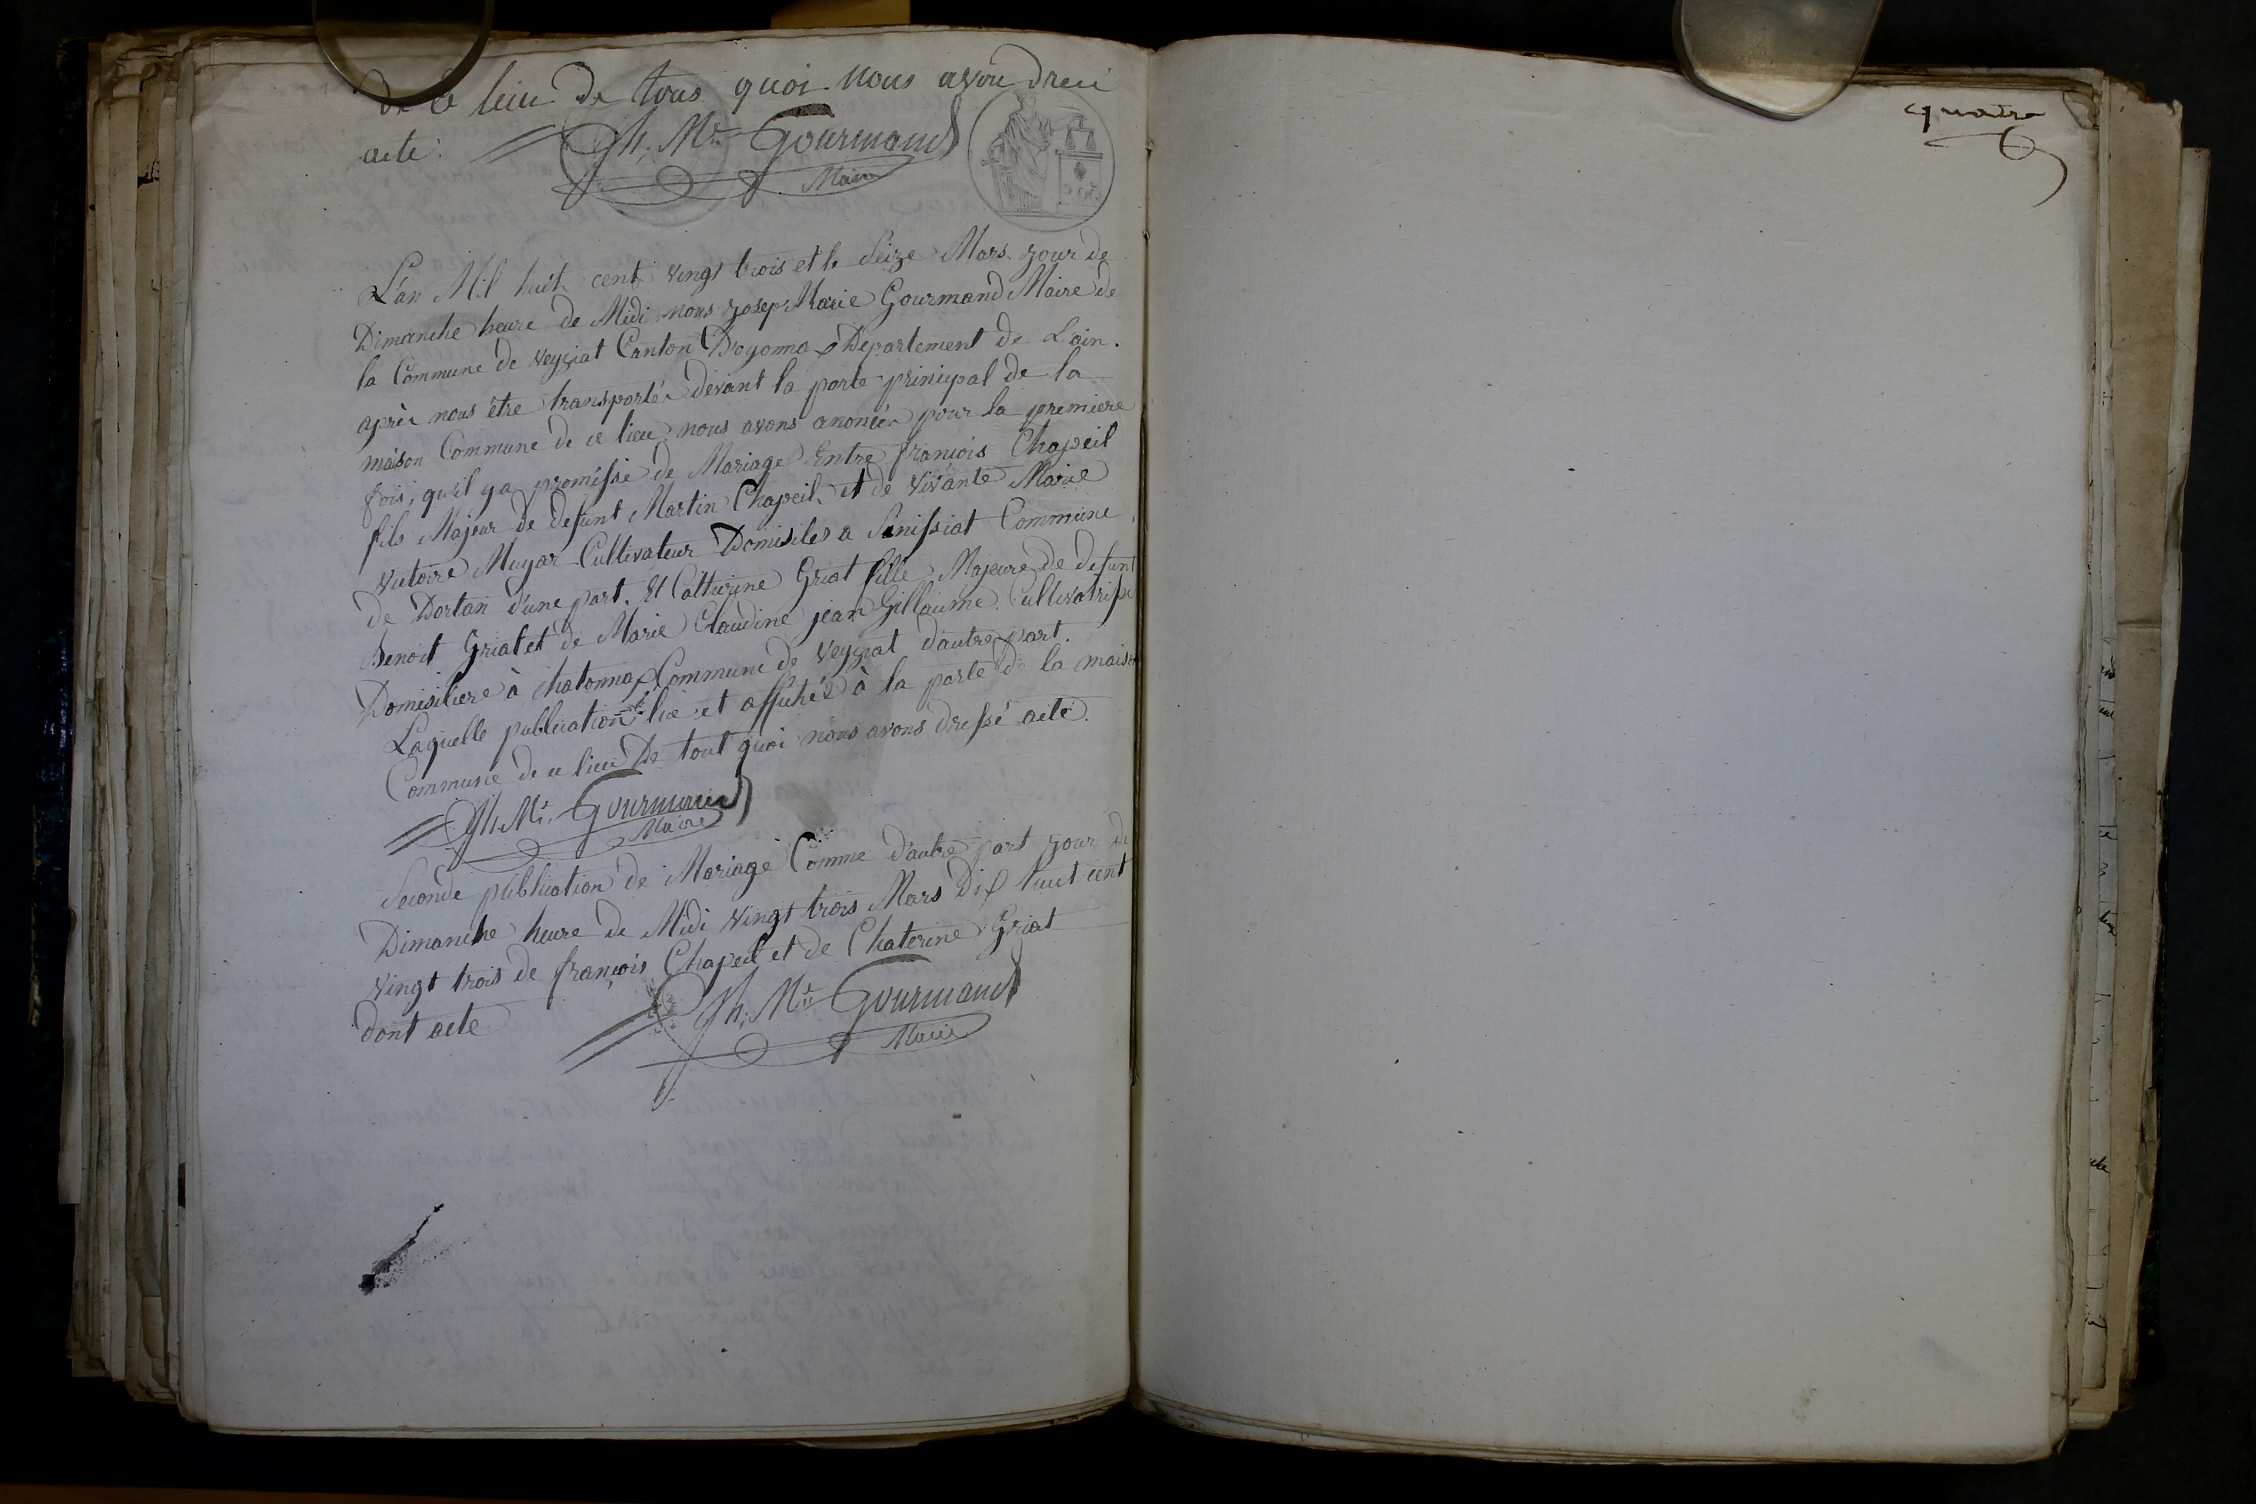 de ce lieu de tous quoi nous avon dreci
acte. Jh. Mie Gourmand
Maire
L'an Mil huit cent vingt trois et le Seize Mars jour de
Dimanche heure de Midi nous Josep Marie Gourmand Maire de
la Commune de Veyziat Canton D'oyonnax Département de Lain.
après nous être transportés devant la porte prinicpal de la
maison Commune de ce lieu, nous avons anoncér pour la premiere
fois, qu'il ya promesse de Mariage Entre françois Chapeil
fils Majeur de defunt Martin Chapeil et de vivante Marie
Victoire Muyar Cultivateur Domisiles a Senissiat Commune
de Dortan d'une part. Et Catterine Griat fille Majeure de defunt
Benoit Griat et de Marie Claudine jean Gillaume Cultivatrisse
Domisiliere à Chatonnax Commune de Veyziat d'autre part.
Laquelle publication lue et affiché à la porte de la maison
Commune de ce lieu De tout quoi nous avons dressé acte.
Jh. Mie Gourmand
Maire
Seconde publication de Mariage Comme d'autre part jour de
Dimanche heure de Midi Vingt trois Mars Dix huit cent
vingt trois de françois Chapeil et de Chaterine Griat
dont acte Jh. Mie Gourmand
Maire
quatre